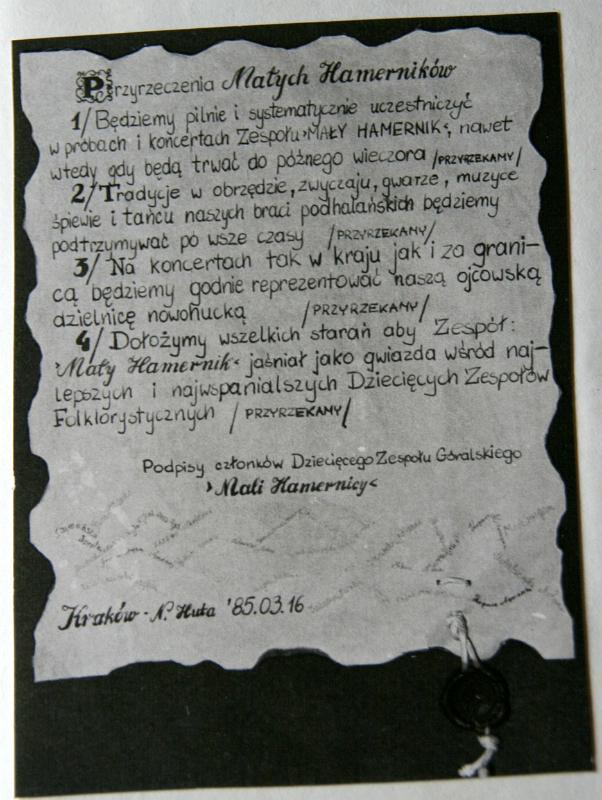 Przyrzeczenia Małych Hamerników
1/ Będziemy pilnie i systematycznie uczestniczyć
w próbach i koncertach Zespołu ›MAŁY HAMERNIK‹, nawet
wtedy gdy będą trwać do późnego wieczora /PRZYRZEKAMY/
2/ Tradycje w obrzędzie, zwyczaju, gwarze, muzyce
śpiewie i tańcu naszych braci podhalańskich będziemy
podtrzymywać po wsze czasy /PRZYRZEKAMY/
3/ Na koncertach tak w kraju jak i za grani-
cą będziemy godnie reprezentować naszą ojcowską
dzielnicę nowohucką /PRZYRZEKAMY/
4/ Dołożymy wszelkich starań aby Zespół:
›Mały Hamernik‹ jaśniał jako gwiazda wśród naj-
lepszych i najwspanialszych Dziecięcych Zespołów
Folklorystycznych /PRZYRZEKAMY/
Podpisy członków Dziecięcego Zespołu Góralskiego
›Mali Hamernicy‹
Kraków - N. Huta '85.03.16